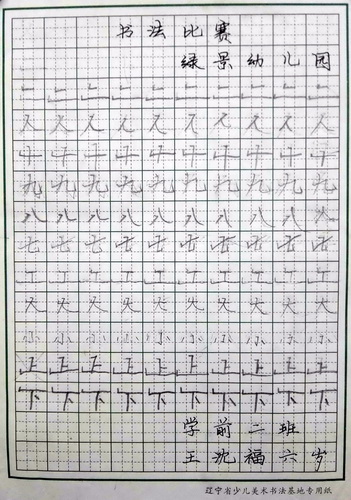 书法比赛
绿景幼儿园
二二二二二二二二二二
人人人人人人人人人人
十十十十十十十十十十
九九九九九九九九九九
八八八八八八八八八八
七七七七七七七七七七
工工工工工工工工工工
大大大大大大大大大大
小小小小小小小小小小
上上上上上上上上上上
下下下下下下下下下下
学前二班
王沈福六岁
辽宁省少儿美术书法基地专用纸